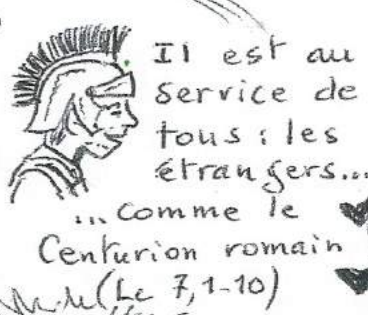 Il est au
service de
tous : les
étrangers...
... comme le
Centurion romain
(Lc 7,1-10)